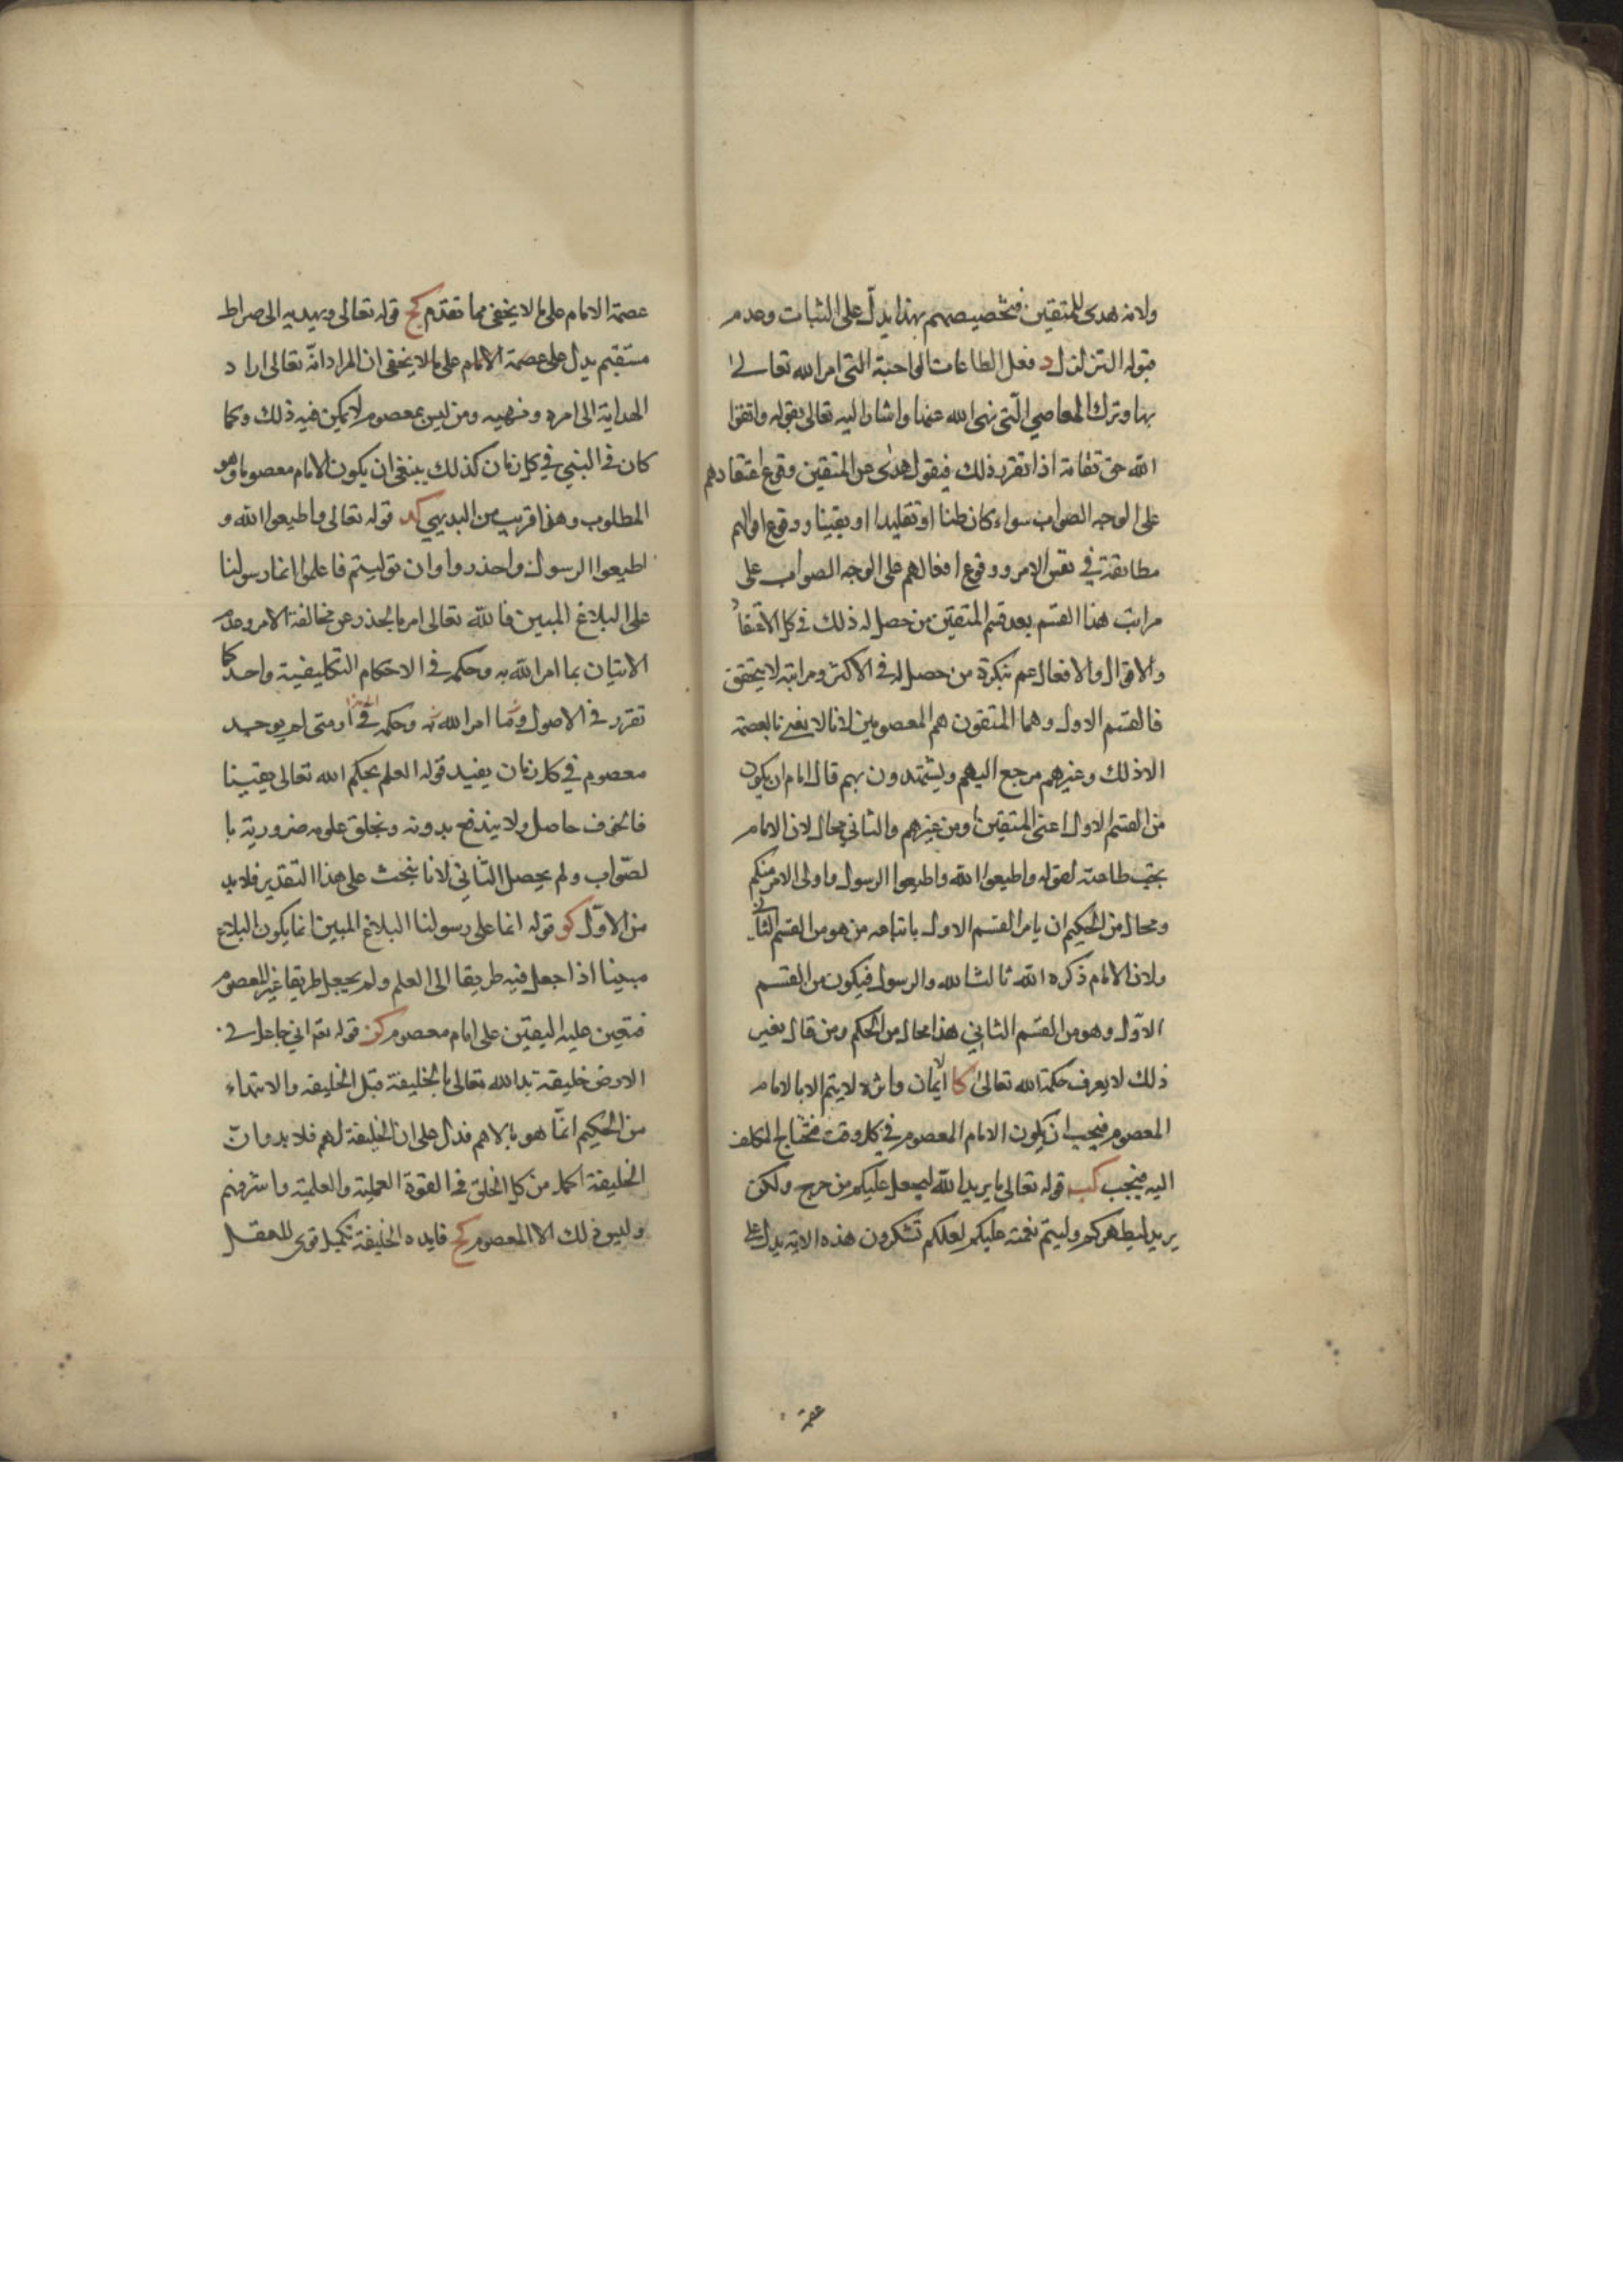 ولانه هدى للمتقين فتخصيصهم بهذا يدل على الثبات وعدم
قبوله التزلزل د فعل الطاعات الواجبة التي امر الله تعالى
بها وترك المعاصي التي نهى الله عنها واشار اليه تعالى بقوله واتقوا
الله حق تقاته اذا تقرر ذلك فيقول هدى من المتقين وقوع اعتقادهم
على الوجه الصواب سواء كان ظنا او تقليدا او يقينا ووقوع اقوالهم
مطابقة في نفس الامر ووقوع افعالهم على الوجه الصواب على
مراتب هذا القسم بعد قسم المتقين من حصل له ذلك في كل الاعتقاد
والاقوال والافعال من حصل له في الاكثر ومراتبه لا يتحقق
فالقسم الاول وهما المتقون هم المعصومين لانا لا نعني بالعصمة
الا ذلك وغيرهم مرجع اليهم ويهتدون بهم قال امام ان يكون
من القسم الاول اعني المتقين او من غيرهم والثاني محال لان الامام
يجب طاعته لقوله واطيعوا الله واطيعوا الرسول واولى الامر منكم
ومحال من الحكيم ان يامر القسم الاول باتباعه من هو من القسم الثاني
ولان الامام ذكره الله ثالثا لله والرسول فيكون من القسم
الاول وهو من القسم الثاني هذا محال من الحكم ومن قال بغير
ذلك لا يعرف حكمة الله تعالى كا لا يتم الا بالامام
المعصوم فيجب ان يكون الامام المعصوم في كل وقت محتاج المكلف
اليه فيجب كب قوله تعالى ما يريد الله ليجعل عليكم من حرج ولكن
يريد ليطهركم وليتم نعمته عليكم لعلكم تشكرون هذه الاية يدل على
عصمة
عصمة الامام على ما لا يخفى مما تقدم كج قوله تعالى ويهديه الى صراط
مستقيم يدل على عصمة الامام على ما لا يخفى ان المراد انه تعالى اراد
الهداية الى امره ونهيه ومن ليس بمعصوم لا يمكن فيه ذلك وكما
كان في النبي في كل زمان كذلك ينبغي ان يكون الامام معصوما وهو
المطلوب وهذا قريب من البديهي كد قوله تعالى واطيعوا الله و
اطيعوا الرسول واحذروا وان توليتم فاعلموا انما رسولنا
على البلاغ المبين فالله تعالى امر بالحذر عن مخالفة الامر وعدم
الاتيان بما امر الله به وحكمه في الاحكام التكليفية واحد كما
تقرر في الاصول وما امر الله به وحكمه في ومتى لم يوجد
معصوم في كل زمان يفيد قوله العلم بحكم الله تعالى يقينا
فالخوف حاصل ولا يندفع بدونه وبخلق علوم ضرورية با
لصواب ولم يحصل الثاني لانا نبحث على هذا التقدير فلا بد
من الاول كو قوله انما على رسولنا البلاغ المبين انما يكون البلاغ
مبينا اذا جعل فيه طريقا الى العلم ولم يجعل طريقا غير المعصوم
فتعين عليه اليقين على امام معصوم كز قوله تعم اني جاعل في
الارض خليقة بدا الله تعالى بالخليفة قبل الخليقه والابتداء
من الحكيم انما هو بالاهم فدل على ان الخليفة لهم فلا بد وان
الخليفة اكمل من كل الخلق في القوة العملية والعلمية واشرفهم
وليس ذلك الا المعصوم كح فايده الخليفة تكميل قوى للعقل